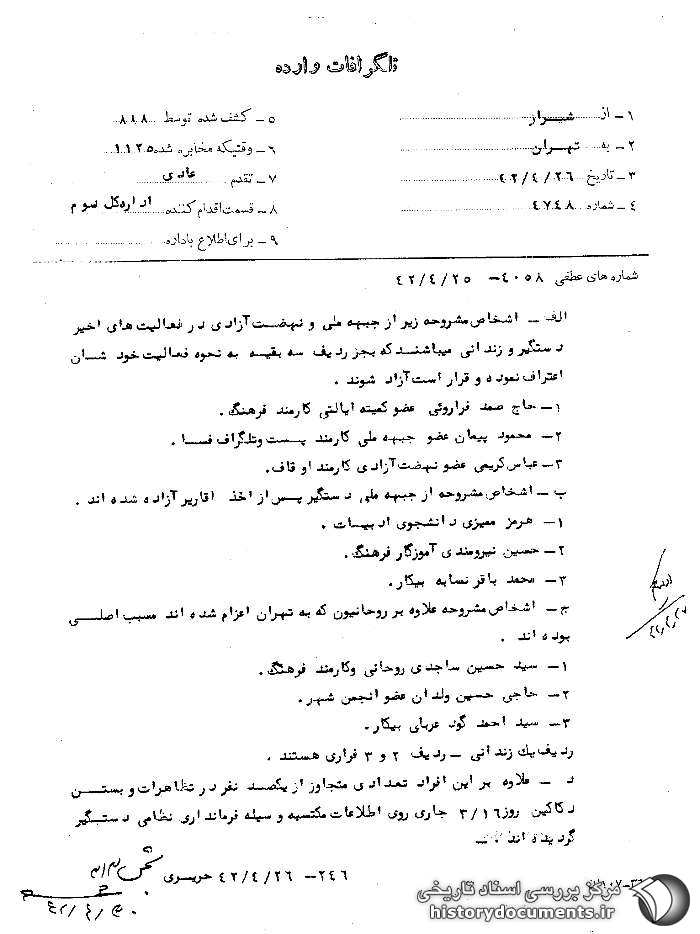 تلگرافات وارده
۱ـ از شیراز
۲ـ به تهران
۳ـ تاریخ ۴۲/۴/۲۶
۴ـ شماره ۴۷۴۸
۵ـ کشف شده توسط ۸۸۸
۶ـ وقتیکه مخابره شده ۱۱۲۵
۷ـ تقدم عادی
۸ـ قسمت اقدام کننده اداره کل سوم
۹ـ برای اطلاع باداره
شماره های عطفی ۴۰۵۸ـ ۴۲/۴/۲۵
الف ـ اشخاص مشروحه زیر از جبهه ملی و نهضت آزادی در فعالیت های اخیر
دستگیر و زندانی میباشند که بجز ردیف سه بقیه به نحوه فعالیت خود شان
اعتراف نموده و قرار است آزاد شوند .
۱ـ حاج صمد فراروئی عضو کمیته ایالتی کارمند فرهنگ .
۲ـ محمود پیمان عضو جبهه ملی کارمند پست وتلگراف فسا .
۳ـ عباس کریمی عضو نهضت آزادی کارمند اوقاف.
ب ـ اشخاص مشروحه از جبهه ملی دستگیر پس از اخذ اقاریر آزاده شده اند .
۱ـ هرمز ممیزی دانشجوی ادبیات .
۲ـ حسین نیرومندی آموزگار فرهنگ .
۳ـ محمد باقر نسابه بیکار .
ج ـ اشخاص مشروحه علاوه بر روحانیون که به تهران اعزام شده اند مسبب اصلی
بوده اند .
۱ـ سید حسین ساجدی روحانی وکارمند فرهنگ .
۲ـ حاجی حسین ولدان عضو انجمن شهر .
۳ـ سید احمد گود عربای بیکار .
ردیف یك زندانی ـ ردیف ۲ و ۳ فراری هستند .
د ـ علاوه بر این افراد تعدادی متجاوز از یکصد نفر در تظاهرات و بستن
دکاکین روز ۳/۱۶ جاری روی اطلاعات مکتسبه وسیله فرمانداری نظامی دستگیر
گردیده اند . ـ
۲۴۶ـ ۴۲/۴/۲۶ حریری
۴۲/۴/۲۷
۴۲/۴/۳۰
مرکز بررسی اسناد تاریخی
historydocuments.ir